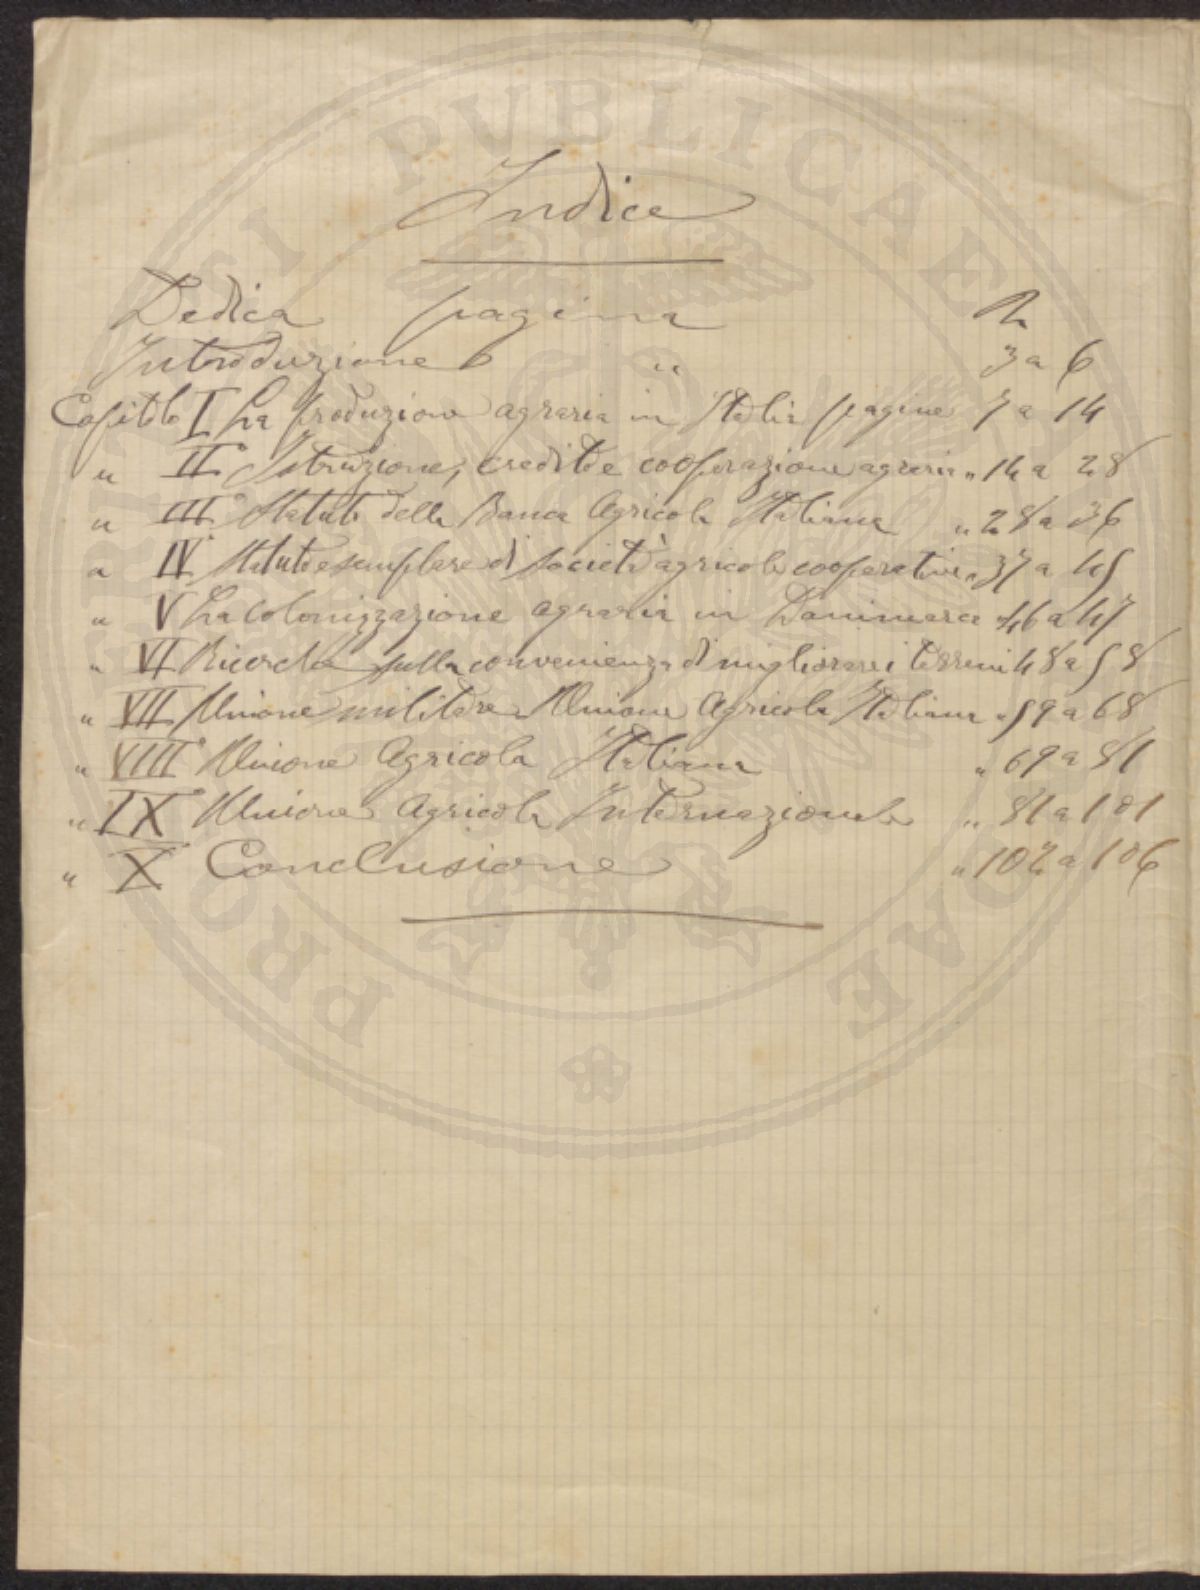 Indice
Dedica pagina 2
Introduzione " 3 a 6
Capitolo I La produzione agraria in Italia pagine 7 a 14
" II° Istruzione, credito e cooperazione agraria " 14 a 28
" III° Statuto della Banca Agricola Italiana " 28 a 36
" IV° Statuto esemplare di società agricole cooperative " 37 a 45
" V La Colonizzazione agraria in Danimarca " 46 a 47
" VI Ricerche sulla convenienza di migliorare i terreni 48 a 58
" VII° Unione militare Unione Agricola Italiana " 59 a 68
" VIII° Unione Agricola Italiana " 69 a 81
" IX° Unione Agricola Internazionale " 81 a 101
" X Conclusione " 102 a 106